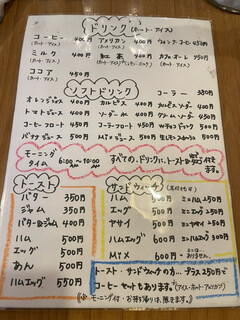 ドリンク (ホット・アイス)
コーヒー 400円 アメリカン 400円 ウィンナーコーヒー 450円
(ホット・アイス) (ホット・アイス)
ミルク 400円 紅茶 400円 カフェオーレ 450円
(ホット・アイス) (ホット・アイス)
ココア 450円
(ホット・アイス)
ソフトドリンク コーラー 350円
オレンジジュース 400円 カルピス 400円 カルピスソーダー 400円
トマトジュース 400円 ソーダー水 400円 クリームソーダー 500円
コーヒーフロート 450円 コーラーフロート 450円
バナナジュース 500円 MIXジュース 500円
モーニングタイム 6:00〜10:00 すべてのドリンクに、トースト付きます。
トースト
バター 350円
ジャム 350円
バター&ジャム 400円
ハム 500円
エッグ 500円
あん 500円
ハムエッグ 550円
サンドウィッチ
ハム 500円 ミニハム 250円
エッグ 500円 ミニエッグ 250円
ヤサイ 500円 ミニヤサイ 250円
ハムエッグ 600円 ミニハムエッグ 300円
MIX 600円
トースト・サンドウィッチの方… プラス250円で
コーヒーセットもあります。(アイス・ホット・アメリカン)
(※モーニング付・お持ち帰りは、限ります。)